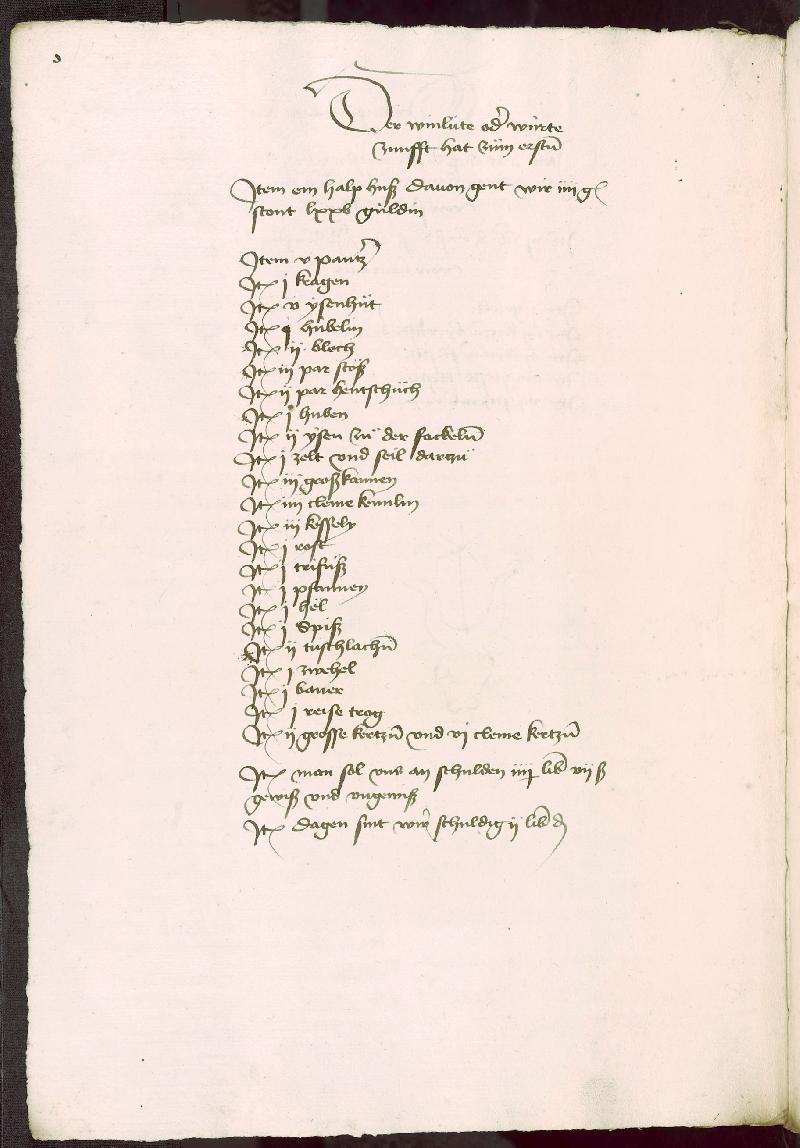 Der winlúte od' wúrte
zunfft hat zům erstū
Item ein halp huß davon gent wir iiij g
stont lxxv gúldin
Item v pantz'
Itē j kragen
Itē v ysenhůt
Itē j húbelin
Itē ij blech
Itē iij par stöß
Itē ij par hentschůch
Itē j huben
Itē ij ysen zů der fackelū
Itē j zelt vnd seil darzů
Itē iij großkannen
Itē iiij cleine kennlin
Itē iij kessely
Itē j rost
Itē j trifůß
Itē j pfannen
Itē j hel
Itē j spiß
Itē ij tischlachū
Itē j zwehel
Itē j baner
Itē j reise trog
Itē ij grosse kertzū vnd vj cleine kertzū
Itē man sol vns an schulden iiij lib vij ß
gewiß vnd vngewiß
Itē dagen sint wir schuldig ij lib d